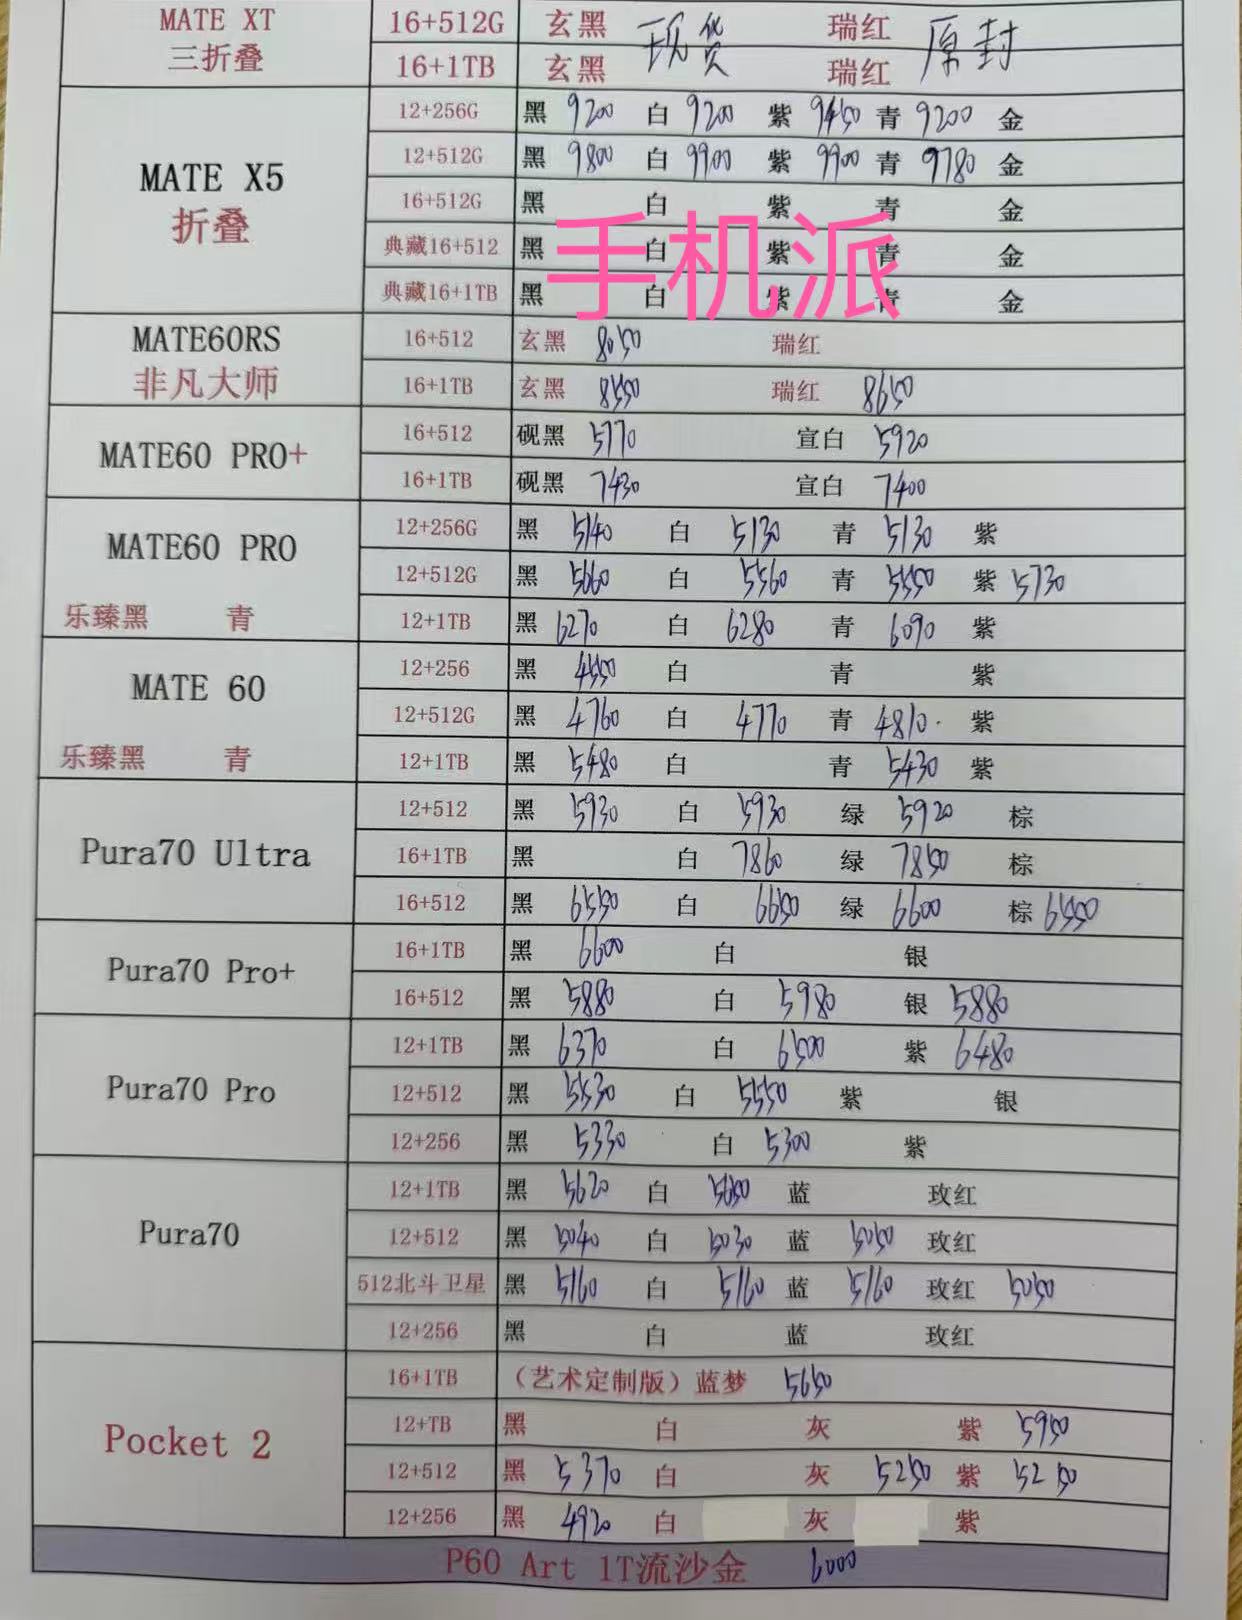 MATE XT 16+512G 玄黑 现货 瑞红 原封
三折叠 16+1TB 玄黑 瑞红
12+256G 黑 9200 白 9200 紫 9450 青 9200 金
MATE X5 12+512G 黑 9800 白 9900 紫 9900 青 9780 金
折叠 16+512G 黑 白 紫 青 金
典藏16+512 黑 白 紫 青 金
手机派
典藏16+1TB 黑 白 紫 青 金
MATE60RS 16+512 玄黑 8050 瑞红
非凡大师 16+1TB 玄黑 8550 瑞红 8650
MATE60 PRO+ 16+512 砚黑 5770 宣白 5920
16+1TB 砚黑 7430 宣白 7400
MATE60 PRO 12+256G 黑 5140 白 5130 青 5130 紫
12+512G 黑 5660 白 5560 青 5550 紫 5730
乐臻黑 青 12+1TB 黑 6270 白 6280 青 6090 紫
MATE 60 12+256 黑 4550 白 青 紫
12+512G 黑 4760 白 4770 青 4810 紫
乐臻黑 青 12+1TB 黑 5480 白 青 5430 紫
12+512 黑 5930 白 5930 绿 5920 棕
Pura70 Ultra 16+1TB 黑 白 7860 绿 7850 棕
16+512 黑 6550 白 6650 绿 6600 棕 6550
Pura70 Pro+ 16+1TB 黑 6600 白 银
16+512 黑 5880 白 5980 银 5880
12+1TB 黑 6370 白 6500 紫 6480
Pura70 Pro 12+512 黑 5530 白 5550 紫 银
12+256 黑 5330 白 5300 紫
12+1TB 黑 5620 白 5650 蓝 玫红
Pura70 12+512 黑 5040 白 5030 蓝 5050 玫红
512北斗卫星 黑 5160 白 5160 蓝 5160 玫红 5050
12+256 黑 白 蓝 玫红
16+1TB （艺术定制版）蓝梦 5650
Pocket 2 12+TB 黑 白 灰 紫 5950
12+512 黑 5370 白 灰 5250 紫 5250
12+256 黑 4920 白 灰 紫
P60 Art 1T流沙金 6000